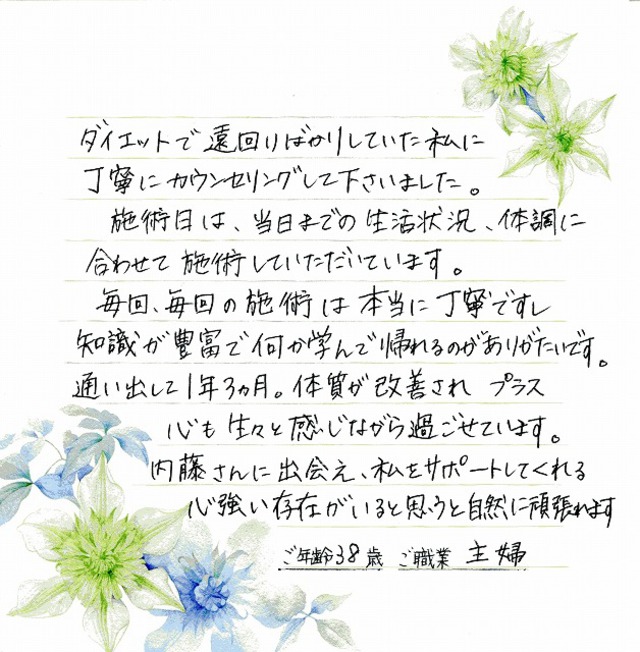 ダイエットで遠回りばかりしていた私に
丁寧にカウンセリングして下さいました。
施術日は、当日までの生活状況、体調に
合わせて施術していただいています。
毎回、毎回の施術は本当に丁寧ですし
知識が豊富で何か学んで帰れるのがありがたいです。
通い出して1年3ヵ月。体質が改善され プラス
心も生々と感じながら過ごせています。
内藤さんに出会え、私をサポートしてくれる
心強い存在がいると思うと自然に頑張れます
ご年齢38歳 ご職業 主婦